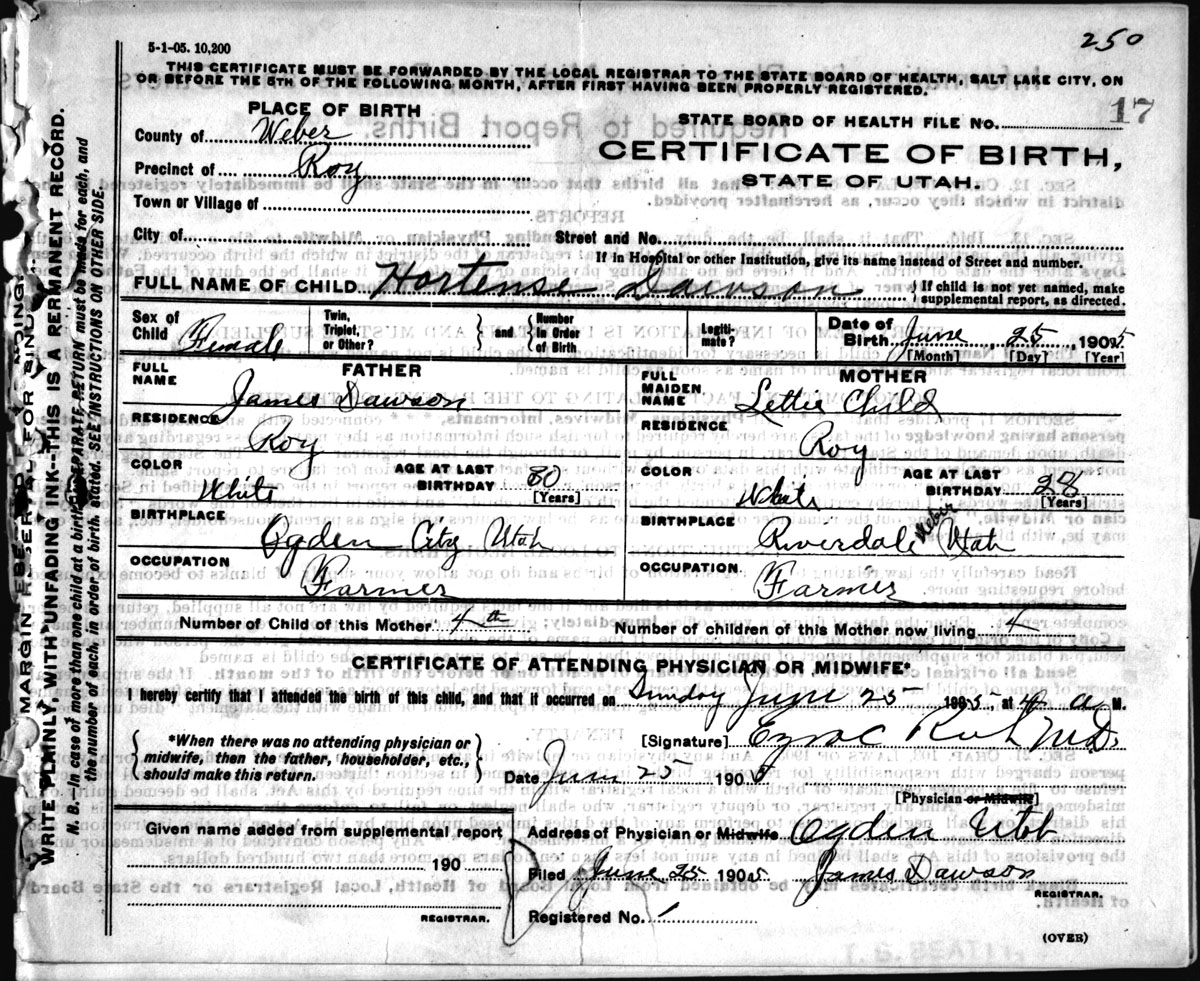 250
5-1-05. 10,200
THIS CERTIFICATE MUST BE FORWARDED BY THE LOCAL REGISTRAR TO THE STATE BOARD OF HEALTH, SALT LAKE CITY, ON
OR BEFORE THE 5TH OF THE FOLLOWING MONTH, AFTER FIRST HAVING BEEN PROPERLY REGISTERED.
17
PLACE OF BIRTH
STATE BOARD OF HEALTH FILE NO.
County of Weber
CERTIFICATE OF BIRTH,
Precinct of Roy
STATE OF UTAH.
Town or Village of
City of
Street and No.
If in Hospital or other Institution, give its name instead of Street and number.
FULL NAME OF CHILD Hortense Dawson { If child is not yet named, make supplemental report, as directed.
Sex of Child Female
Twin, Triplet, or Other? } and { Number in Order of Birth
Legiti-mate?
Date of Birth June 25, 1905
[Month] [Day] [Year]
FATHER
FULL NAME James Dawson
RESIDENCE Roy
COLOR White
AGE AT LAST BIRTHDAY 30 [Years]
BIRTHPLACE Ogden City Utah
OCCUPATION Farmer
MOTHER
FULL MAIDEN NAME Lettie Child
RESIDENCE Roy
COLOR White
AGE AT LAST BIRTHDAY 28 [Years]
BIRTHPLACE Riverdale Weber Utah
OCCUPATION Farmer
Number of Child of this Mother 4th
Number of children of this Mother now living 4
CERTIFICATE OF ATTENDING PHYSICIAN OR MIDWIFE*
I hereby certify that I attended the birth of this child, and that it occurred on Sunday June 25 1905, at 4 a M.
{ *When there was no attending physician or midwife, then the father, householder, etc., should make this return. }
[Signature] Ezra C Rich M.D.
Date June 25 1905
[Physician or Midwife]
Given name added from supplemental report
190
REGISTRAR.
Address of Physician or Midwife Ogden Utah
Filed June 25 1905 James Dawson
REGISTRAR.
Registered No. 1
(OVER)
MARGIN RESERVED FOR BINDING.
WRITE PLAINLY, WITH UNFADING INK—THIS IS A PERMANENT RECORD.
N. B.—In case of more than one child at a birth, a SEPARATE RETURN must be made for each, and
the number of each, in order of birth, stated. SEE INSTRUCTIONS ON OTHER SIDE.